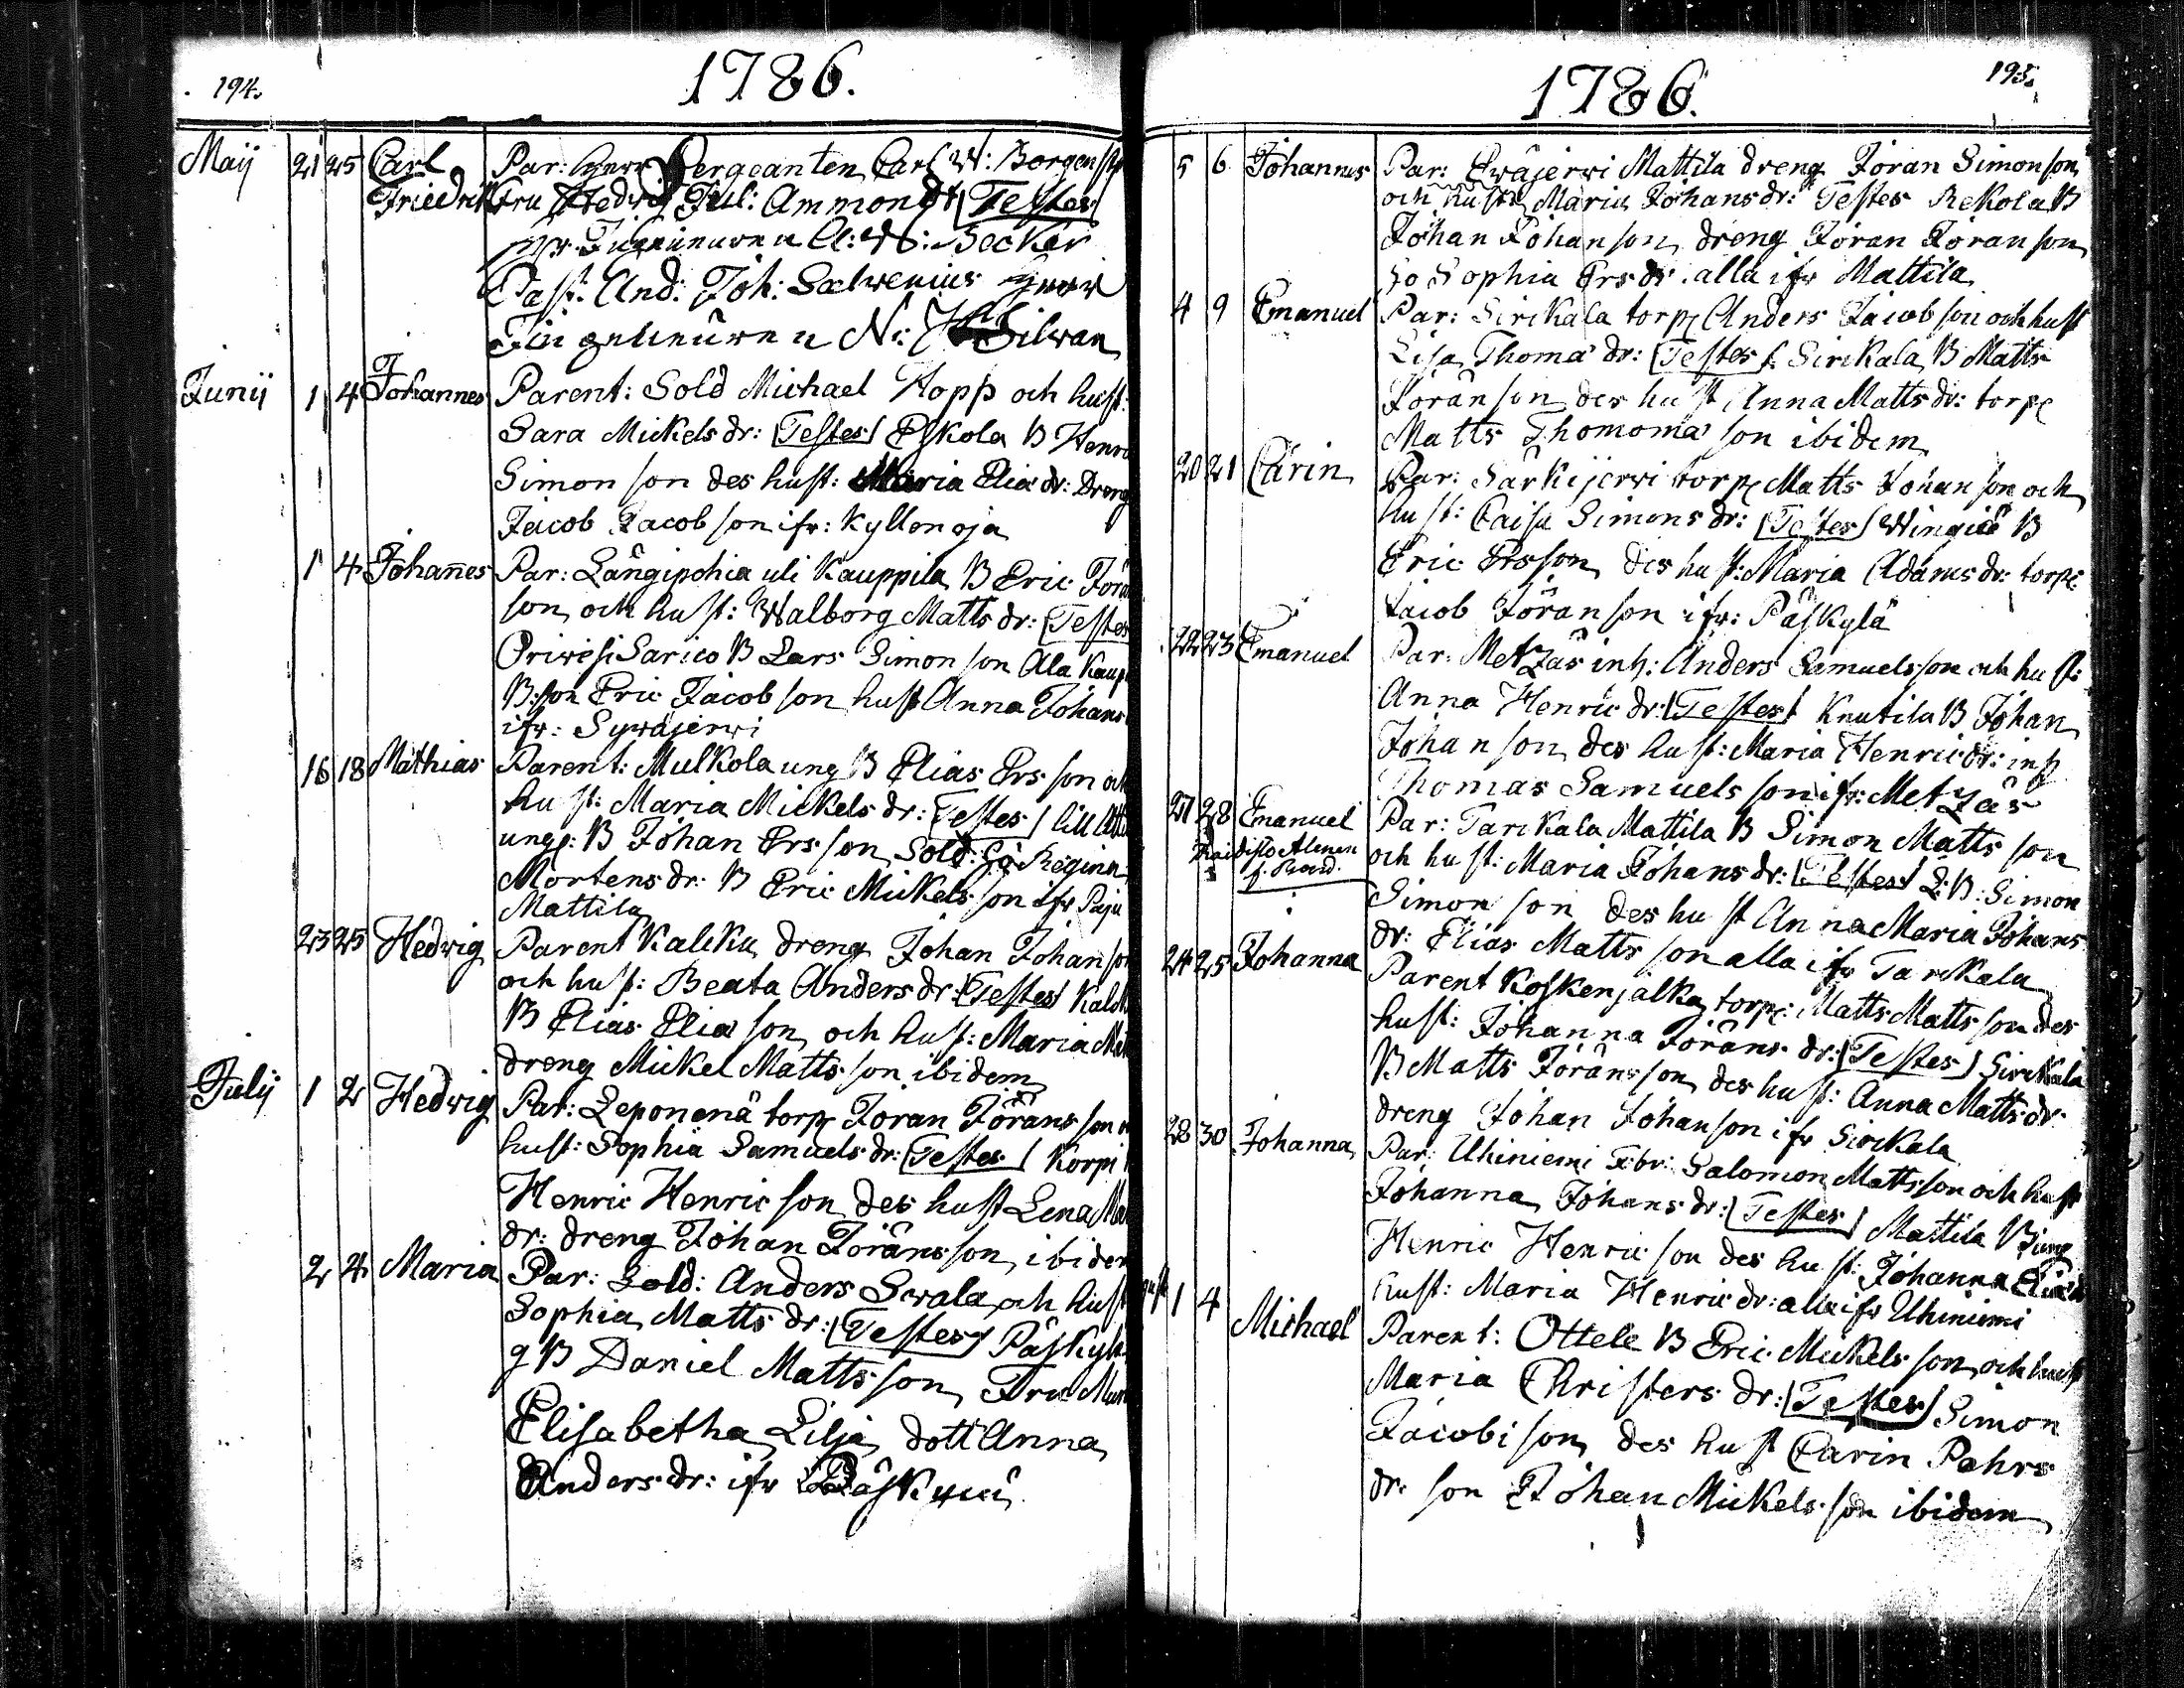 194.
1786.
Maij 21 25 Carl Par: Herr Sergeanten Carl W: Borgenst
Friedrik Fru Hedvig Jul: Ammondt Testes
Hr A: W: Becker
Past: And: Joh: Salvenius Herr
N: Silwan
Junij 1 4 Johannes Parent: Sold Michael Hopp och hust:
Sara Mickels dr: Testes Eskola B Henric
Simon son des hust: Maria Elia dr: Dreng
Jacob Jacob son ifr: Kyllonoja
1 4 Johañes Par: Långipohia uli Kauppila B Eric Jöra
son och hust: Walborg Matts dr: Testes
Oriwesi Sarico B Lars Simon son Ala Kaup
B: son Eric Jacob son hust Anna Johans
ifr: Sywäjerwi
16 18 Mathias Parent: Mulkola ung B Elias Ers son och
hust: Maria Mickels dr: Testes lill
ung: B Johan Ers son Sold: Regina
Mortens dr: B Eric Mickels son ifr Paju
Mattila
23 25 Hedwig Parent Kaleku dreng Johan Johan son
och hust: Beata Anders dr: Testes
B Elias Elia son och hust: Maria
dreng Mickel Matts son ibidem
Julij 1 2 Hedwig Par: Leponenä torp Joran Jörans son
hust: Sophia Samuels dr: Testes Korpi
Henric Henric son des hust Lena
dr: dreng Johan Jöransson ibidem
2 4 Maria Par: Sold: Anders Swala och hust
Sophia Matts dr: Testes Päskyl
g B Daniel Matts son Fru
Elisabetha Lilja dott Anna
Anders dr: ifr
1786.
195.
5 6 Johannes Par: Ewäjerwi Mattila dreng Jöran Simonson
och hustr Maria Johans dr: Testes Rekola B
Johan Johan son dreng Jöran Jöran son
Sophia Ers dr. alla ifr Mattila
4 9 Emanuel Par: Sirikala torp Anders Jacob son och hust
Lisa Thoma dr: Testes Sirikala B Matts
Jöran son des hust Anna Matts dr: torp
Matts Thomoma son ibidem
20 21 Carin Par: Särkijerwi torp Matts Johan son och
hust: Caisa Simons dr: Testes Wingiä B
Eric Ersson des hust: Maria Adams dr: torp:
Jacob Jöranson ifr: Päskylä
22 23 Emanuel Par: Metzäs inh: Anders Samuelsson och hust:
Anna Henric dr: Testes Knutila B Johan
Johan son des hust: Maria Henric dr: inh
Thomas Samuels son ifr: Metzäs
27 28 Emanuel Par: Tarckala Mattila B Simon Matts son
och hust: Maria Johans dr: Testes L: B: Simon
Simon son des hust Anna Maria Johans
dr: Elias Matts son alla ifr Tarckala
24 25 Johanna Parent Koskenjalka torp: Matts Matts son des
hust: Johanna Jörans dr: Testes Sirikala
B Matts Jöransson des hust: Anna Matts dr:
dreng Johan Johanson ifr Sirikala
28 30 Johanna Par: Uhiniemi Salomon Mattsson och hust
Johanna Johans dr: Testes Mattila B ung
Henric Henric son des hust: Johanna
hust: Maria Henric dr: alla ifr Uhiniemi
1 4 Michael Parent: Ottele B Eric Mickels son och hust
Maria Christers dr: Testes Simon
Jacobi son des hust Carin Pehrs
dr. son Johan Mickels son ibidem